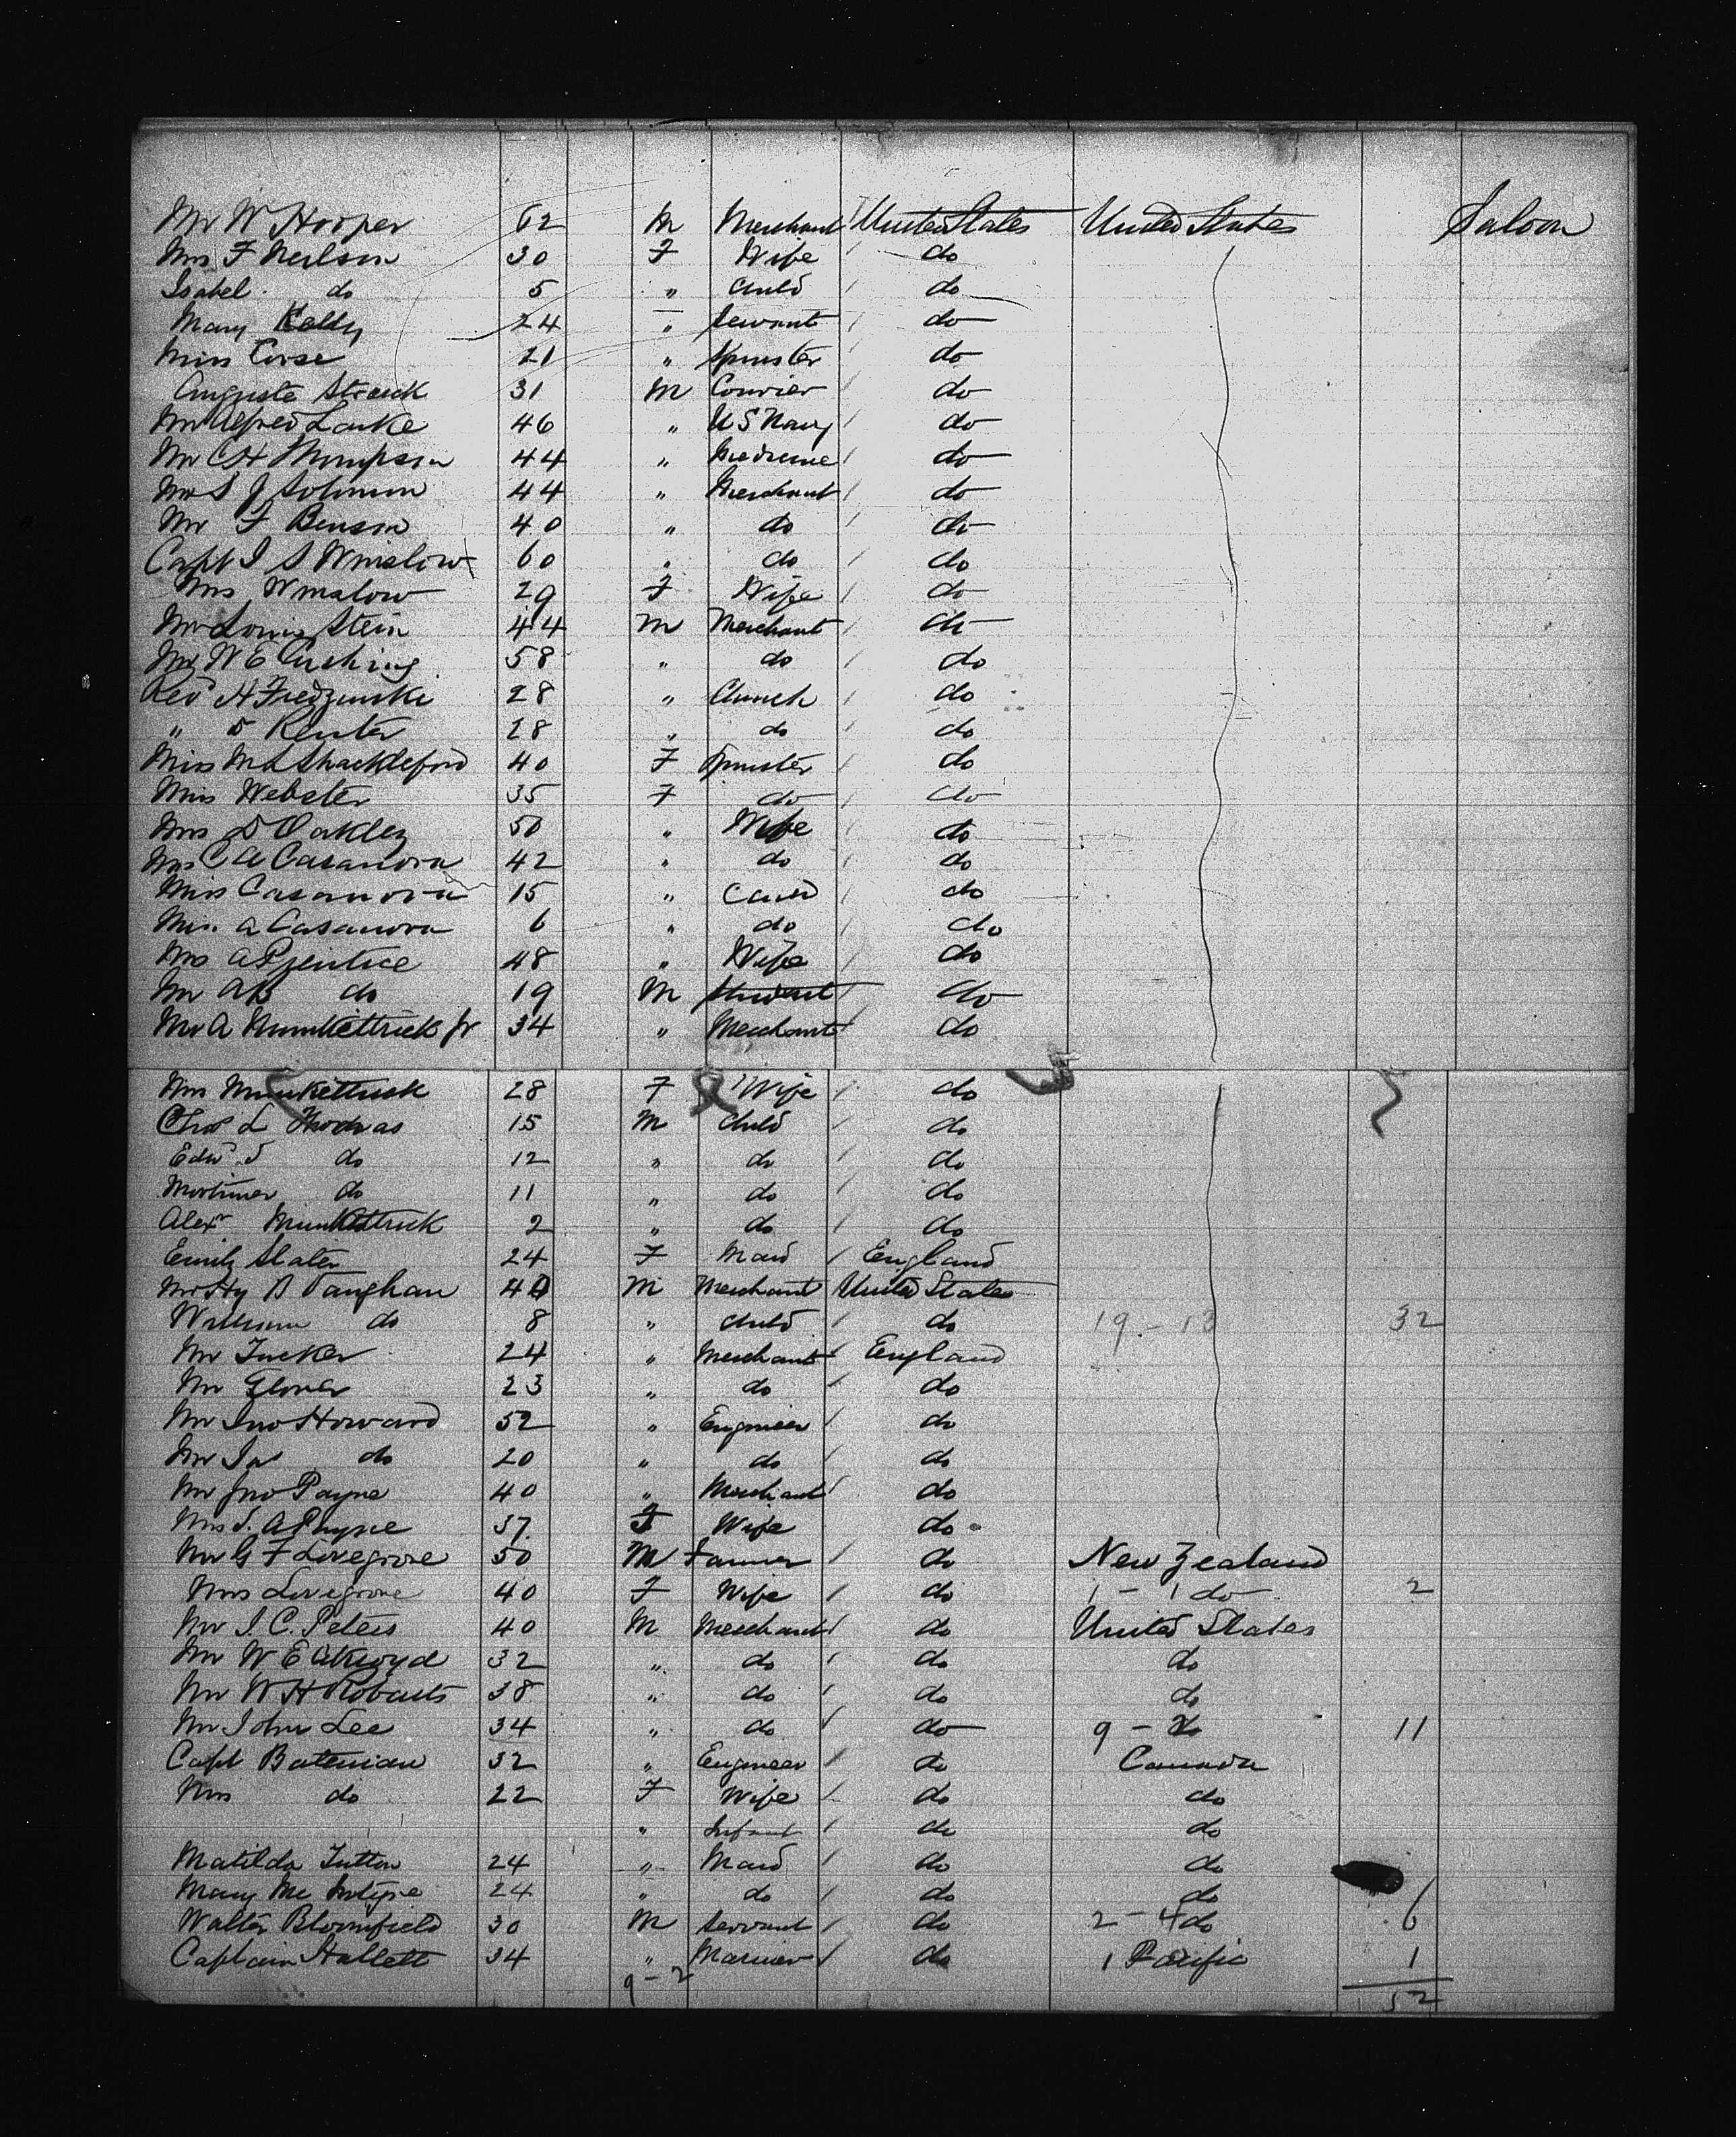 Mr W Hooper 62 M Merchant United States United States Saloon
Mrs F Neilson 30 F Wife do
Isabel do 5 " Child do
Mary Kelly 24 " Servant do
Miss Corse 21 " Spinster do
Auguste Strack 31 M Courier do
Mr Alfred Locke 46 " U S Navy do
Mr C H Thompson 44 " Medicine do
Mr S J Solomon 44 " Merchant do
Mr F Benson 40 " do do
Capt I S Winslow 60 " do do
Mrs Winslow 29 F Wife do
Mr Louis Stein 44 M Merchant do
Mr W E Cushing 58 " do do
Revd H 28 " Church do
" Reuter 28 " do do
Miss M L Shackleford 40 F Spinster do
Miss Webster 35 F do do
Mrs D Oakley 50 " Wife do
Mrs C A Casanova 42 " do do
Miss Casanova 15 " Child do
Miss A Casanova 6 " do do
Mrs A Prentice 48 " Wife do
Mr A B do 19 M Student do
Mr A Munkittrick Jr 34 " Merchant do
Mrs Munkittrick 28 F Wife do
Chas L Thomas 15 M Child do
Edwd S do 12 " do do
Mortimer do 11 " do do
Alexr Munkittrick 2 " do do
Emily Slater 24 F Maid England
Mr Hy B Vaughan 40 M Merchant United States
William do 8 " Child do 19 - 13 32
Mr Tucker 24 " Merchant England
Mr Glover 23 " do do
Mr Jno Howard 52 " Engineer do
Mr Jas do 20 " do do
Mr Jno Payne 40 " Merchant do
Mrs S. A Payne 37 F Wife do
Mr G F Lovegrove 50 M Farmer do New Zealand
Mrs Lovegrove 40 F Wife do 1 - 1 do 2
Mr I. C. Peters 40 M Merchant do United States
Mr W E Akroyd 32 " do do do
Mr W H Robarts 38 " do do do
Mr John Lee 34 " do do 9 - 2 do 11
Capt Bateman 32 " Engineer do Canada
Mrs do 22 F Wife do do
" Infant do do
Matilda Tutton 24 " Maid do do
Mary Mc Intyre 24 " do do do
Walter Bloomfield 30 M Servant do 2 - 4 do 6
Captain Hallett 34 " Mariner do 1 Pacific 1
9 - 2 52